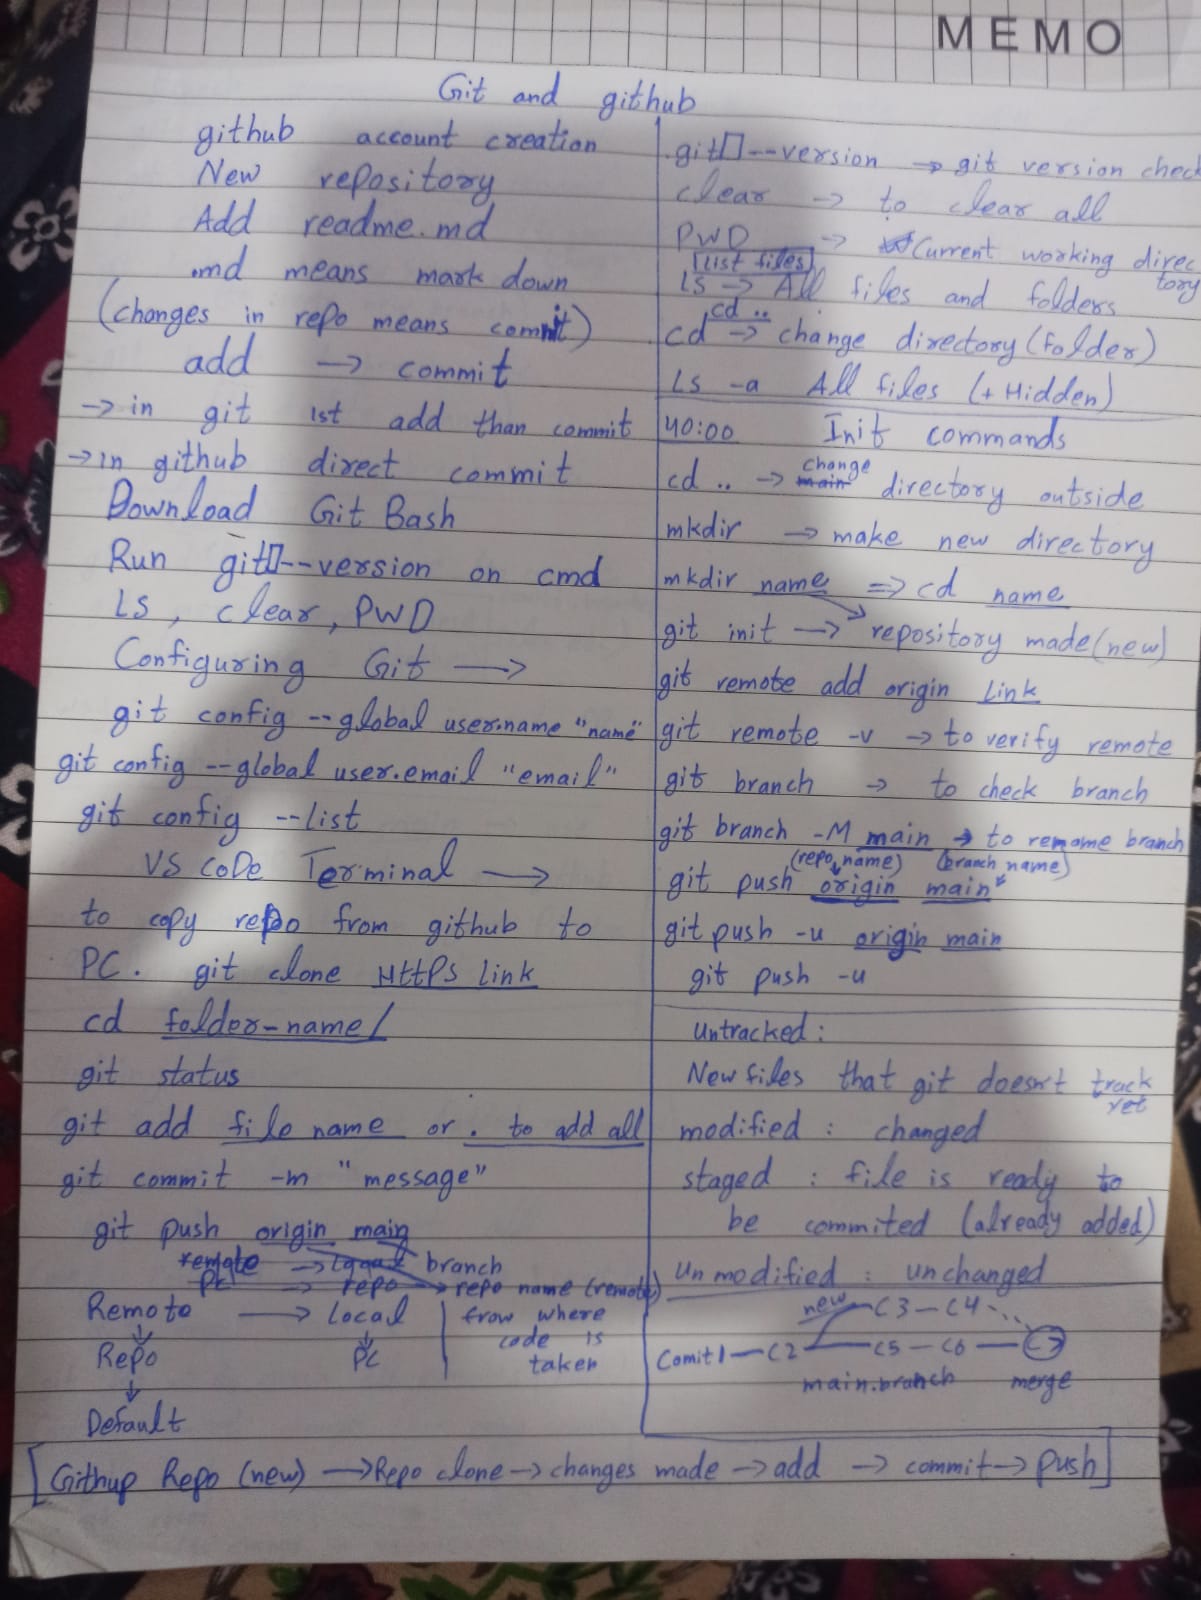 MEMO
Git and github
github account creation
New repository
Add readme.md
.md means mark down
(changes in repo means commit)
add → commit
→ in git 1st add than commit
→ in github direct commit
Download Git Bash
Run git▯--version on cmd
LS, clear, PWD
Configuring Git →
git config --global user.name "name"
git config --global user.email "email"
git config --list
VS CoDe Terminal →
to copy repo from github to
PC. git clone HttPS link
cd folder-name/
git status
git add file name or . to add all
git commit -m "message"
git push origin main
branch
repo name (remote)
Remote → Local
↓ ↓
Repo PC
↓
Default
from where
code is
taken
git▯--version → git version check
clear → to clear all
PWD → Current working direc
tory
List files
LS → All files and folders
cd ..
cd → change directory (folder)
LS -a All files (+ Hidden)
40:00 Init commands
change
cd .. → main directory outside
mkdir → make new directory
mkdir name ⇒ cd name
git init → repository made (new)
git remote add origin Link
git remote -v → to verify remote
git branch → to check branch
git branch -M main → to rename branch
(repo name) (branch name)
git push origin main
git push -u origin main
git push -u
Untracked:
New files that git doesn't track
yet
modified : changed
staged : file is ready to
be commited (already added)
Un modified : unchanged
new C3 - C4
Comit1 - C2 - C5 - C6 -
main.branch merge
[Githup Repo (new) → Repo clone → changes made → add → commit → push]